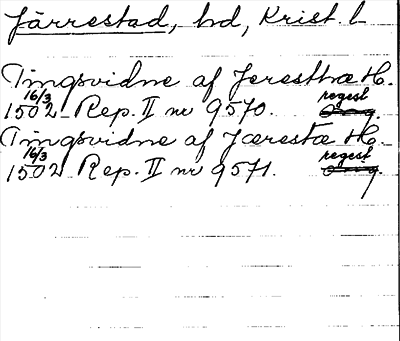 Järrestad, hd, Krist. l
Tingsvidne af Jeresthræ H.
16/3 regest
1502 Rep. II nr 9570. orig.
Tingsvidne af Jæresta H.
16/3 regest
1502 Rep. II nr 9571. orig.